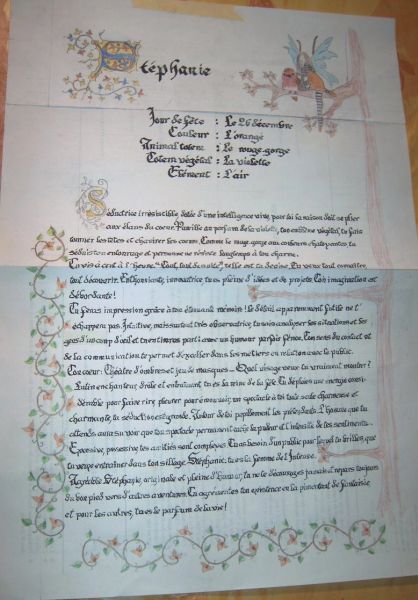 Stéphanie
Jour de fête : Le 26 décembre
Couleur : L'orangé
Animal totem : Le rouge-gorge
Totem végétal : La violette
Elément : L'air
Séductrice irrésistible, dotée d'une intelligence vive, pour toi la raison doit se plier
aux élans du coeur. Pareille au parfum de la violette, ton emblème végétal, tu fais
tourner les têtes et chavirer les coeurs. Comme le rouge-gorge aux couleurs chatoyantes, tu
séduis ton entourage et personne ne résiste longtemps à ton charme.
Tu vis à cent à l'heure. "Tout, tout de suite", telle est ta devise. Tu veux tout connaître,
tout découvrir. Enthousiaste, innovatrice, tu es pleine d'idées et de projets. Ton imagination est
débordante!
Tu feras impression grâce à ton étonnante mémoire! Le détail apparemment futile ne t'
échappera pas. Intuitive, mais surtout très observatrice, tu sais analyser les situations et les
gens d'un coup d'oeil et t'en tireras parti avec un humour parfois féroce. Ton sens du contact et
de la communication te permet d'exceller dans les métiers en relation avec le public.
Ton coeur: Théâtre d'ombres et jeu de masques... Quel visage veux tu vraiment montrer?
Lutin enchanteur, drôle et entraînant, tu es la reine de la fête. Tu déploies une énergie consi-
dérable pour faire rire, pleurer pour émouvoir, un spectacle à toi toute seule charmeuse et
charmante, ta séduction est grande. Autour de toi papillonnent les prétendants. L'homme que tu
attends aura su voir que ton spectacle permanent cache la pudeur et l'intensité de tes sentiments...
Expansive, possessive, tes amitiés sont complexes. Tu as besoin d'un public pour lequel tu brilles, que
tu veux entraîner dans ton sillage. Stéphanie, tu es la femme de l'Intense.
Agréable Stéphanie, originale et pleine d'humour, tu ne te décourages jamais et repars toujours
du bon pied vers d'autres aventures. Tu agrémentes ton existence en la pimentant de fantaisie
et pour les autres, tu es le parfum de la vie!